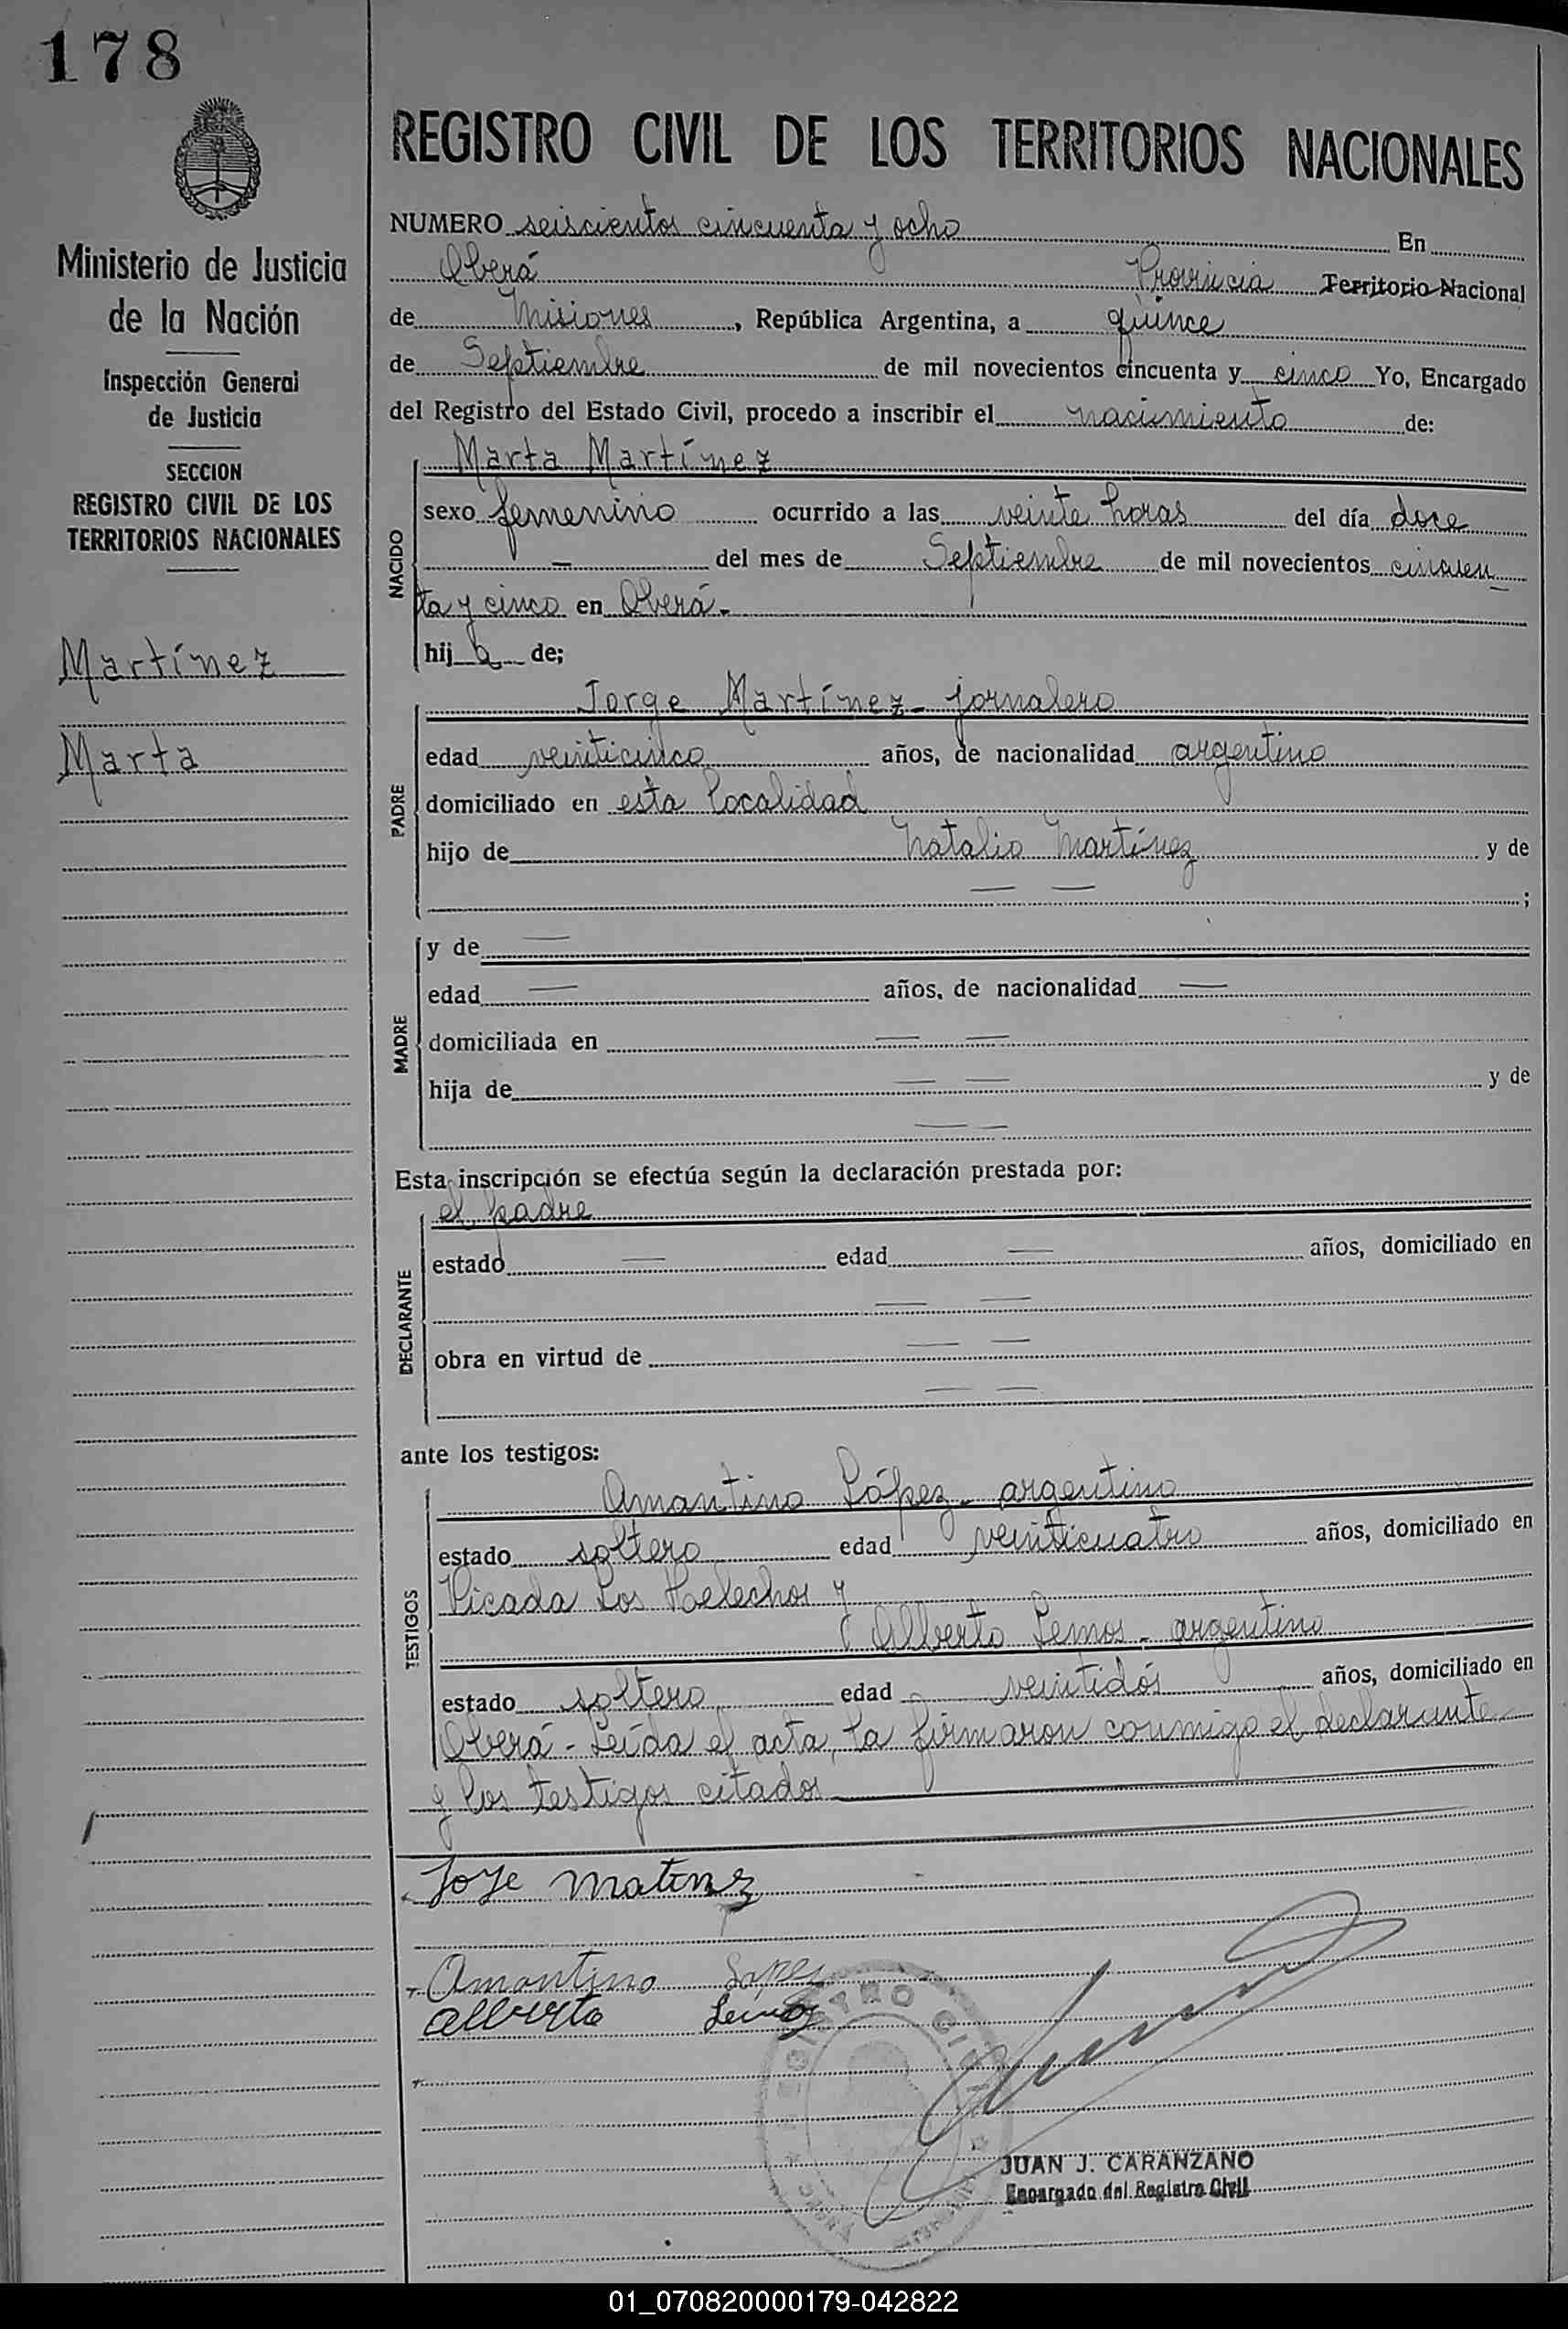 178
Ministerio de Justicia
de la Nación
Inspección General
de Justicia
SECCION
REGISTRO CIVIL DE LOS
TERRITORIOS NACIONALES
Martínez
Marta
REGISTRO CIVIL DE LOS TERRITORIOS NACIONALES
NUMERO seiscientos cincuenta y ocho En
Oberá Provincia Territorio Nacional
de Misiones, República Argentina, a quince
de Septiembre de mil novecientos cincuenta y cinco Yo, Encargado
del Registro del Estado Civil, procedo a inscribir el nacimiento de:
NACIDO
Marta Martínez
sexo femenino ocurrido a las veinte horas del día doce
— del mes de Septiembre de mil novecientos cincuen
ta y cinco en Oberá.-
hij a de;
PADRE
Jorge Martínez - jornalero
edad veinticinco años, de nacionalidad argentino
domiciliado en esta localidad
hijo de Natalio Martínez y de
— — ;
MADRE
y de —
edad — años, de nacionalidad —
domiciliada en — —
hija de — — y de
— —
Esta inscripción se efectúa según la declaración prestada por:
DECLARANTE
el padre
estado — edad — años, domiciliado en
— —
obra en virtud de — —
— —
ante los testigos:
TESTIGOS
Amantino López - argentino
estado soltero edad veinticuatro años, domiciliado en
Picada Los Helechos y
Alberto Lemos - argentino
estado soltero edad veintidós años, domiciliado en
Oberá - Leída el acta, la firmaron conmigo el declarante
y los testigos citados
Joje matinez
Amantino Lopez
alberto Lemos
REGISTRO CIVIL
JUAN J. CARANZANO
Encargado del Registro Civil
01_070820000179-042822